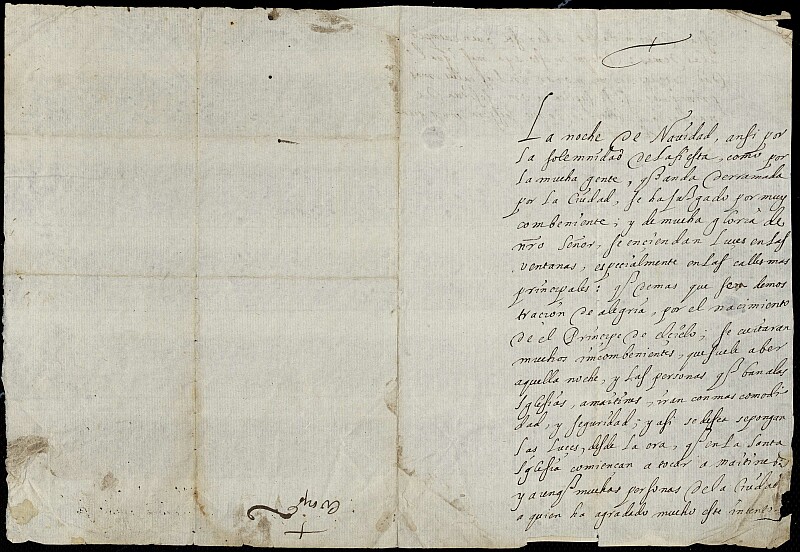 La noche de Nauidad, ansi por
la solemnidad de la fiesta, como por
la mucha gente, q anda derramada
por la Ciudad, se ha juzgado por muy
combeniente; y de mucha gloria de
nro Señor, se enciendan luces en las
ventanas, especialmente en las calles mas
principales: q demas que sera demos
tracion de alegria, por el nacimiento
de el Principe de el cielo; se euitaran
muchos incombenientes, que suele aber
aquella noche, y las personas q ban a las
Iglesias, a maitines, iran con mas comodi
dad, y seguridad; y asi se desea se pongan
las luces, desde la ora, q en la Santa
Iglesia comiencan a tocar a maitines:
y aunq muchas personas de la Ciudad
a quien ha agradado mucho este intento